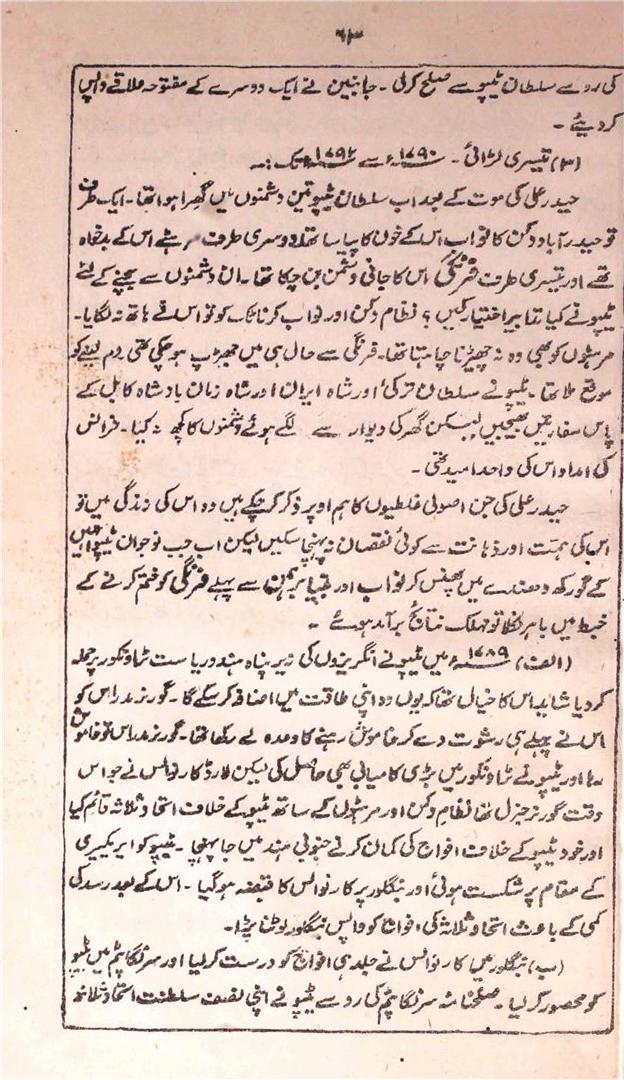 ۶۳
کی رو سے سلطان ٹیپو سے صلح کرلی ۔ جانبین نے ایک دوسرے کے مفتوحہ علاقے واپس
کردیئے ۔
(۳) تیسری لڑائی ۔ ۱۷۹۰ء سے ۱۷۹۲ء تک :۔
حیدر علی کی موت کے بعد اب سلطان ٹیپو تین دشمنوں میں گھرا ہوا تھا ۔ ایک طرف
تو حیدرآباد دکن کا نواب اس کے خون کا پیاسا تھا دوسری طرف مرہٹے اس کے بدخواہ
تھے اور تیسری طرف فرنگی اس کا جانی دشمن بن چکا تھا ۔ ان دشمنوں سے بچنے کے لئے
ٹیپو نے کیا تدابیر اختیار کیں ؟ نظام دکن اور نواب کرناٹک کو تو اس نے ہاتھ نہ لگایا ۔
مرہٹوں کو بھی وہ نہ چھیڑنا چاہتا تھا ۔ فرنگی سے حال ہی میں جھڑپ ہو چکی تھی دم لینے کو
موقع ملا تھا ۔ ٹیپو نے سلطان ترکی اور شاہ ایران اور شاہ زمان بادشاہ کابل کے
پاس سفارتیں بھیجیں لیکن گھر کی دیوار سے لگے ہوئے دشمنوں کا کچھ نہ کیا ۔ فرانس
کی امداد اس کی واحد امید تھی ۔
حیدر علی کی جن اصولی غلطیوں کا ہم اوپر ذکر کر چکے ہیں وہ اس کی زندگی میں تو
اس کی ہمت اور ذہانت سے کوئی نقصان نہ پہنچا سکیں لیکن اب جب نوجوان ٹیپو انہیں
کے گورکھ دھندے میں پھنس کر نواب اور برہمن سے پہلے فرنگی کو ختم کرنے کے
خبط میں باہر نکلا تو مہلک نتائج برآمد ہوئے ۔
(الف) ۱۷۸۹ء میں ٹیپو نے انگریزوں کی زیر پناہ ہندو ریاست ٹراونکور پر حملہ
کردیا شاید اس کا خیال تھا کہ یوں وہ اپنی طاقت میں اضافہ کر سکے گا ۔ گورنر مدراس کو
اس نے پہلے ہی رشوت دے کر خاموش رہنے کا وعدہ لے رکھا تھا ۔ گورنر مدراس تو خاموش
رہا اور ٹیپو نے ٹراونکور میں بڑی کامیابی بھی حاصل کی لیکن لارڈ کارنوالس نے جو اس
وقت گورنر جنرل تھا نظام دکن اور مرہٹوں کے ساتھ ٹیپو کے خلاف اتحاد ثلاثہ قائم کیا
اور خود ٹیپو کے خلاف افواج کی کمان کرنے جنوبی ہند میں جا پہنچا ۔ ٹیپو کو ایریکیری
کے مقام پر شکست ہوئی اور بنگلور پر کارنوالس کا قبضہ ہوگیا ۔ اس کے بعد رسد کی
کمی کے باعث اتحاد ثلاثہ کی افواج کو واپس بنگلور لوٹنا پڑا ۔
(ب) بنگلور میں کارنوالس نے جلد ہی افواج کو درست کرلیا اور سرنگاپٹم میں ٹیپو
کو محصور کرلیا ۔ صلحنامہ سرنگاپٹم کی رو سے ٹیپو نے اپنی نصف سلطنت اتحاد ثلاثہ